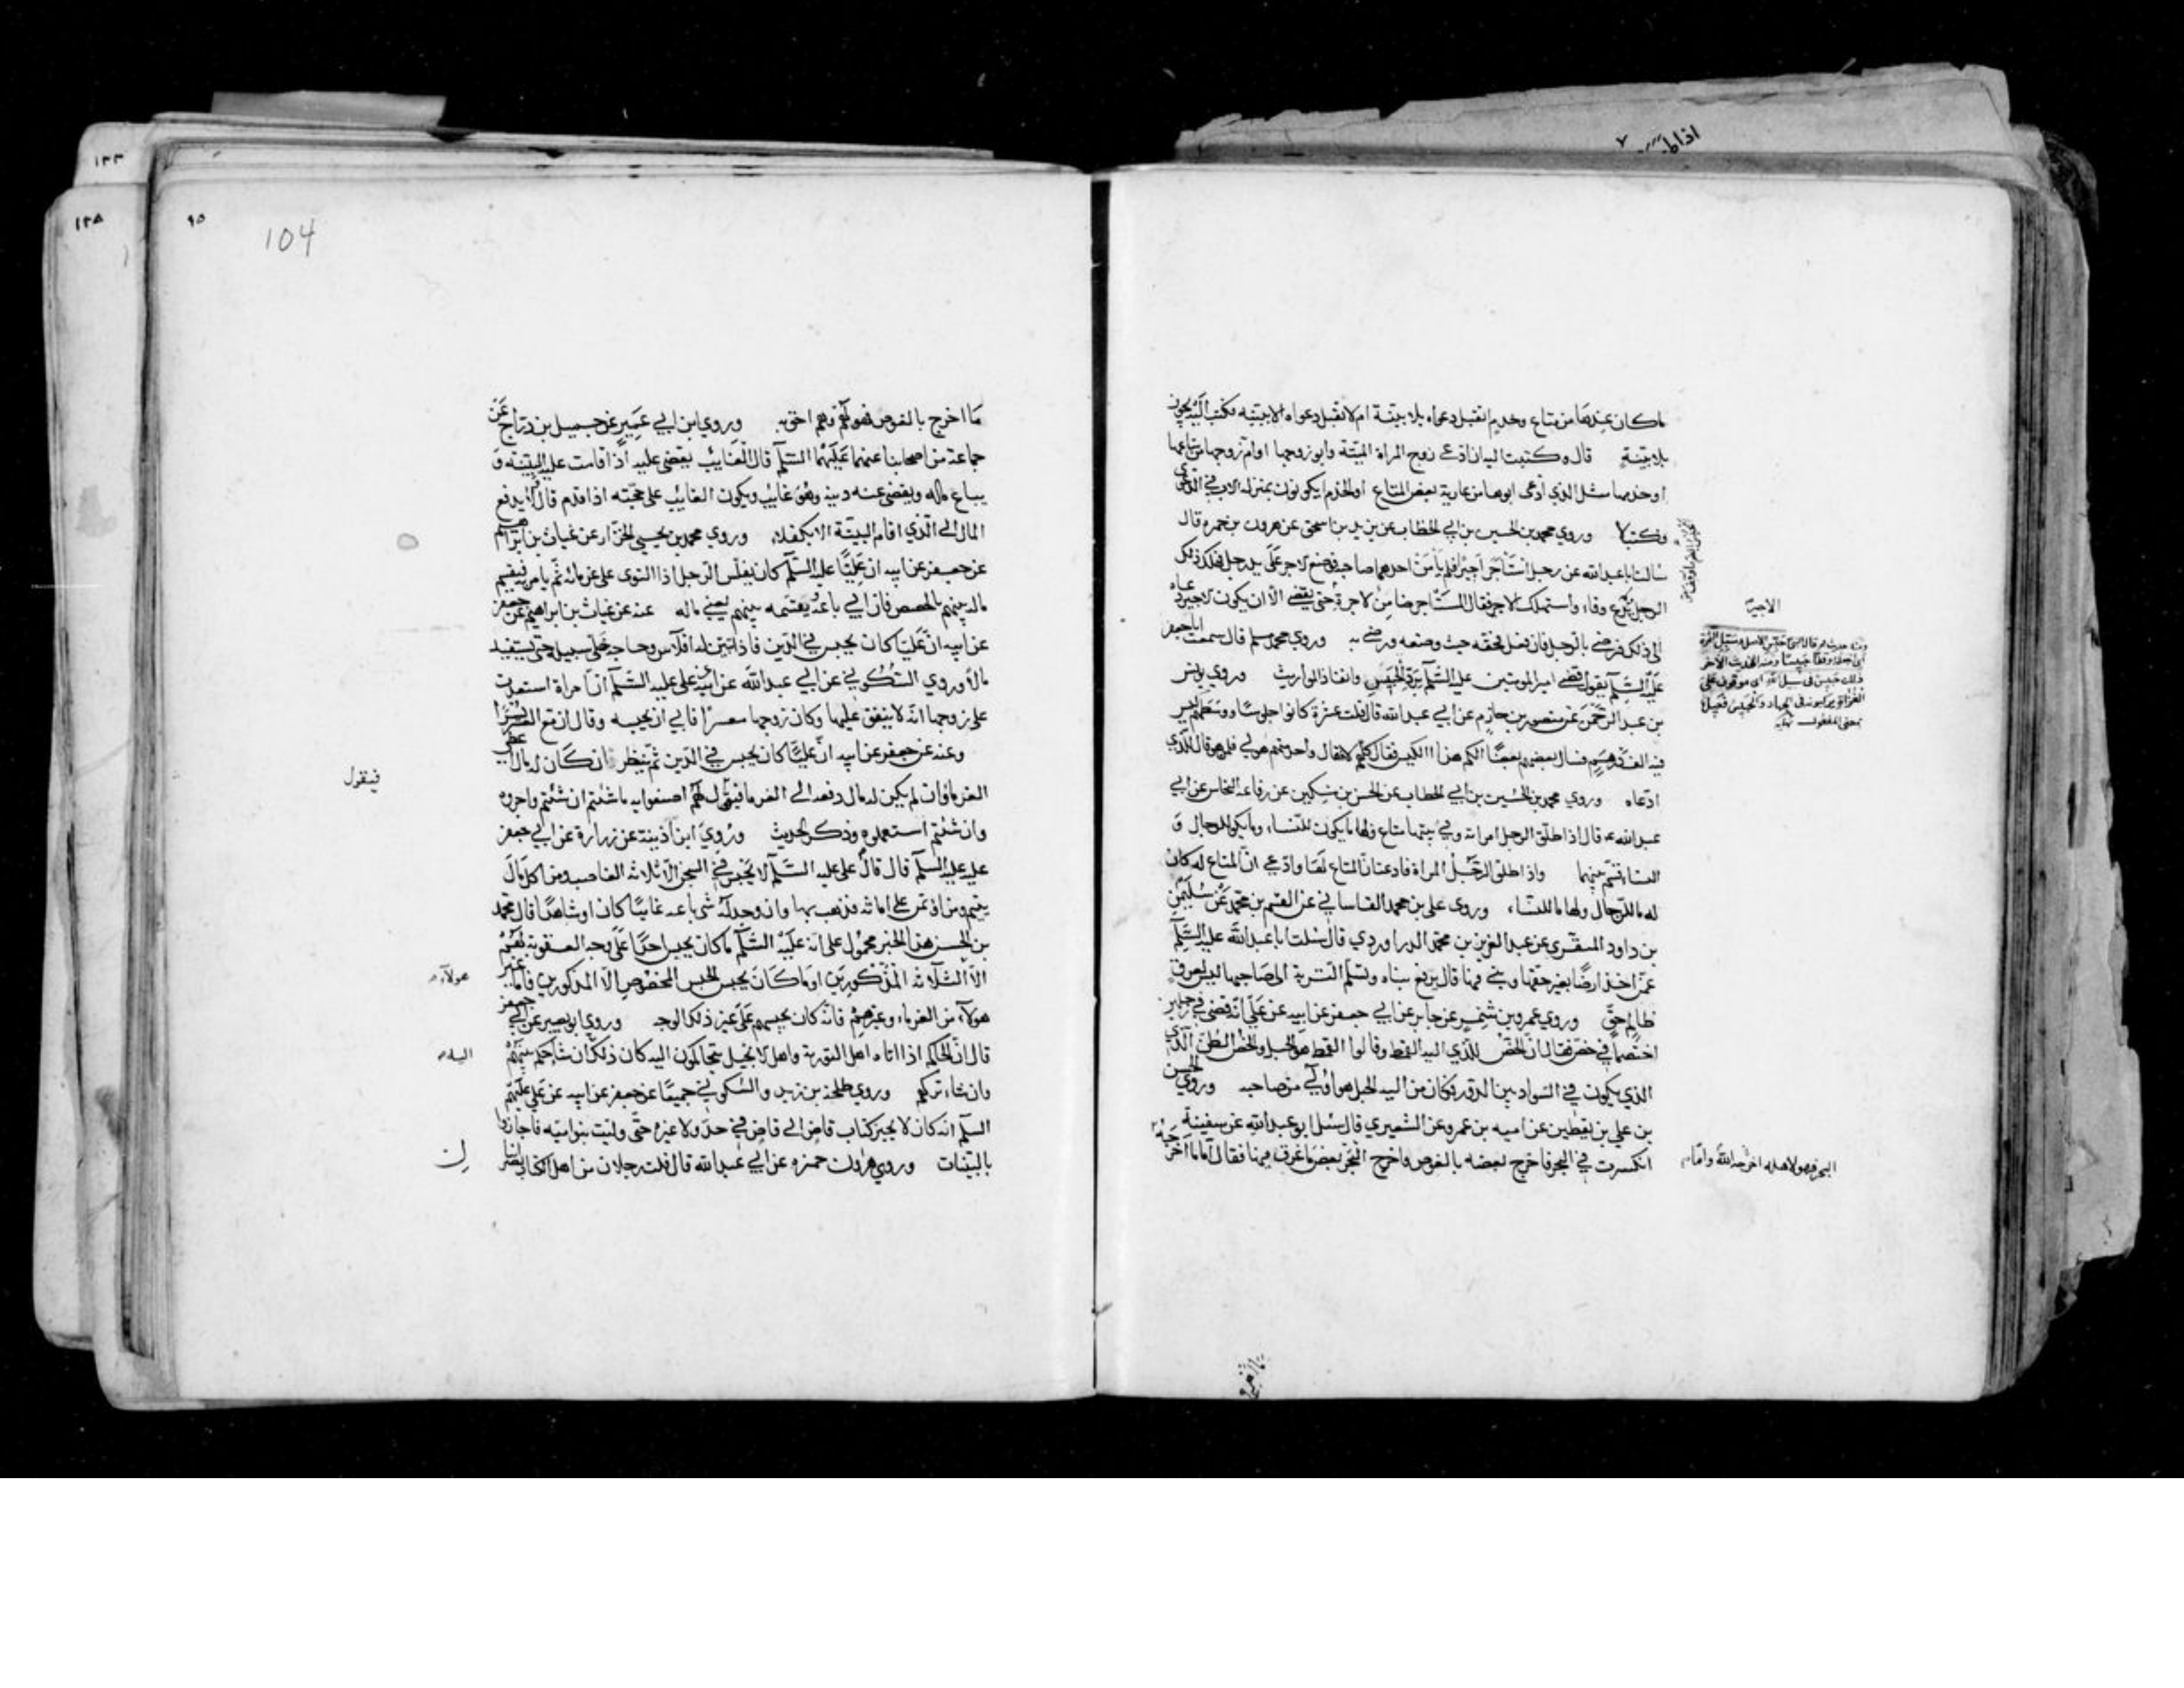 ما كان عندها من متاع وخدم اتقبل دعواه بلا بينة ام لا تقبل دعواه الا ببينه فكتب اليه يجوز
بلا بينة قال وكتبت اليه ان ادعى زوج المراة الميتة وابو زوجها او ام زوجها من متاعها
او خدمها مثل الذي ادعى ابوها من عارية بعض المتاع او الخدم ايكونون بمنزله الاب في الدعوى
فكتب لا وروي محمد بن الحسين بن ابي الخطاب عن يزيد بن اسحق عن هرون بن حمزه قال
سالت ابا عبد الله عن رجل استاجر اجيرا فلم يأمن احدهما صاحبه فوضع الاجر على يد رجل فهلك ذلك
الرجل ولم يدع وفاء واستهلك الاجر فقال المستاجر ضامن لاجرة الاجير حتى يقضى الا ان يكون الاجير دعاه
الى ذلك فرضى بالرجل فان فعل فحقه حيث وضعه ورضى به وروي محمد بن مسلم قال سمعت ابا جعفر
عليه السلم يقول قضى امير المومنين عليه السلم برد الحبيس وانفاذ المواريث وروي يونس
بن عبد الرحمن عن منصور بن حازم عن ابي عبد الله قال قلت عشرة كانوا جلوسا ووسطهم كيس
فيه الف درهم فسال بعضهم بعضا الكم هذا الكيس فقال كلهم لا فقال واحد منهم هو لي فلمن هو قال للذي
ادعاه وروي محمد بن الحسين بن ابي الخطاب عن الحسن بن مسكين عن رفاعه النخاس عن ابي
عبد الله ع قال اذا طلق الرجل امراته وفي بيتها متاع فلها ما يكون للنساء وما يكون للرجال و
النساء قسم بينهما واذا طلق الرجل المراة فادعت ان المتاع لها وادعى ان المتاع له كان
له ما للرجال ولها ما للنساء وروى على بن محمد القاساني عن القسم بن محمد عن سليمن
بن داود المنقري عن عبد العزيز بن محمد الدراوردي قال سئلت ابا عبد الله عليه السلم
عمن اخذ ارضا بغير حقها وبنى فيها قال يرفع بناه وتسلم التربة الى صاحبها ليس لعرق
ظالم حق وروي عمرو بن شمر عن جابر عن ابي جعفر عن ابيه عن علي انه قضى في رجلين
اختصما في خص فقال ان الخص للذي اليه القمط وقالوا القمط هو الحبل والخص الطن الذي
الذي يكون في السواد بين الدور فكان من اليه الحبل هو اولى من صاحبه وروي الحسن
بن علي بن يقطين عن اميه بن عمرو عن الشعيري قال سئل ابو عبد الله عن سفينة
انكسرت في البحر فاخرج بعضه بالغوص واخرج البحر بعض ما غرق فيها فقال اما ما اخرجه
الاجير
البحر فهو لاهله اخرجه الله واما
١٣٣
١٣٨
٩٥
104
ما اخرج بالغوص فهو لهم وهم احق به وروي ابن ابي عمير عن جميل بن دراج عن
جماعة من اصحابنا عنهما عليهما السلم قال الغايب يقضى عليه اذا قامت عليه البينة و
يباع ماله ويقضى عنه دينه وهو غايب ويكون الغايب على حجته اذا قدم قال ولا يدفع
المال الى الذي اقام البينة الا بكفلاء وروي محمد بن يحيى الخزاز عن غياث بن ابراهيم
عن جعفر عن ابيه ان عليا عليه السلم كان يفلس الرجل اذا التوى على غرمائه ثم يامر فيقسم
ماله بينهم بالحصص فان ابي باعه فقسمه بينهم يعني ماله عنه عن غياث بن ابراهيم عن جعفر
عن ابيه ان عليا كان يحبس في الدين فاذا تبين له افلاس وحاجه خلى سبيله حتى يستفيد
مالا وروي السكوني عن ابي عبد الله عن ابيه عن على عليه السلم ان امراة استعدت
على زوجها انه لا ينفق عليها وكان زوجها معسرا فابي ان يحبسه وقال ان مع العسر يسرا
وعنه عن جعفر عن ابيه ان عليا كان يحبس في الدين ثم ينظر ان كان له مال اعطى
الغرما وان لم يكن له مال دفعه الى الغرما فيقول لهم اصنعوا به ما شئتم ان شئتم واجروه
وان شئتم استعملوه وذكر الحديث وروي ابن اذينة عن زرارة عن ابي جعفر
عليه السلم قال قال على عليه السلم لا يحبس في السجن الا ثلاثه الغاصب ومن اكل مال
يتيم ومن اؤتمن على امانته فذهب بها وان وجد له شى باعه غايبا كان او شاهدا قال محمد
بن الحسن هذا الخبر محمول على انه عليه السلم ما كان يحبس احدا على وجه العقوبة لغيرهم
الا الثلاثه المذكورين او ما كان يحبس الحبس المخصوص الا المذكورين فاما غير
هولاء من الغرماء وغيرهم فانه كان يحبسهم على غير ذلك الوجه وروي ابو بصير عن ابي جعفر
قال ان الحاكم اذا اتاه اهل التورية واهل الانجيل يتحاكمون اليه كان ذلك ان شاء حكم بينهم
وان شاء تركهم وروي طلحة بن زيد والسكوني جميعا عن جعفر عن ابيه عن علي عليهم
السلم انه كان لا يجيز كتاب قاض الى قاض في حد ولا غيره حتى وليت بنو اميه فاجازوا
بالبينات وروي هرون بن حمزه عن ابي عبد الله قال قلت رجلان من اهل الكتاب
فيقول
هولاء